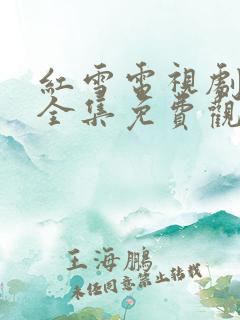 紅雪電視劇
全集免費觀
王海鵬
未经同意禁止转载